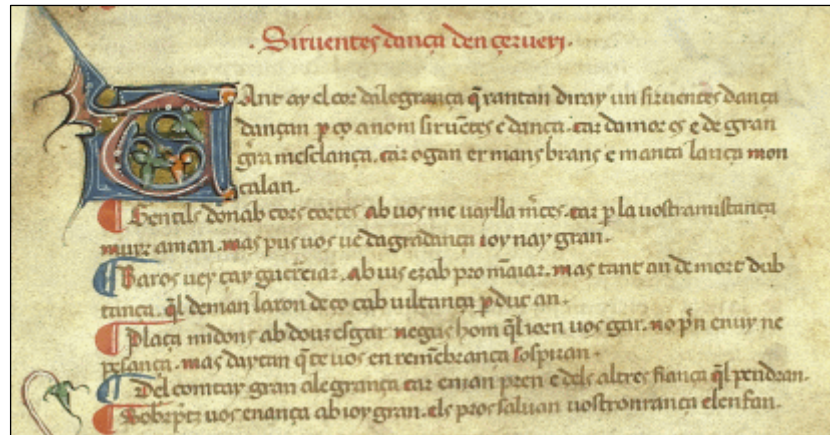 Siruentes dança den çerueri.
Tant ay el cor dalegrança q̃ rantan diray un siruentes dança
dançan p ço a nom siruẽtes e dança. car damor es e de gran
gra mesclança. car ogan er mans brans e manta lança mon
calan.
Gentils don ab cors cortes ab uos me uaylla m̃ces. car p la uostramistança
muyr aman. mas pus uos ue dagradança ioy nay gran.
Baros uey çay guerreiar. ab us ez ab pro m̃aiar. mas tant an de mort dub
tança. q̃l deman laron de ço cab uiltança p duc an.
Plaça midons ab douz esgar negus hom q̃l iorn uos gar. no pñ enuy ne
pesança. mas daytan q̃ te uos en remẽbrança sospiran.
Del comtay gran alegrança car enian pren e dels altres fiança q̃l pendran.
Sobrptz uos enança ab ioy gran. els pros saluan uostronrança elenfan.